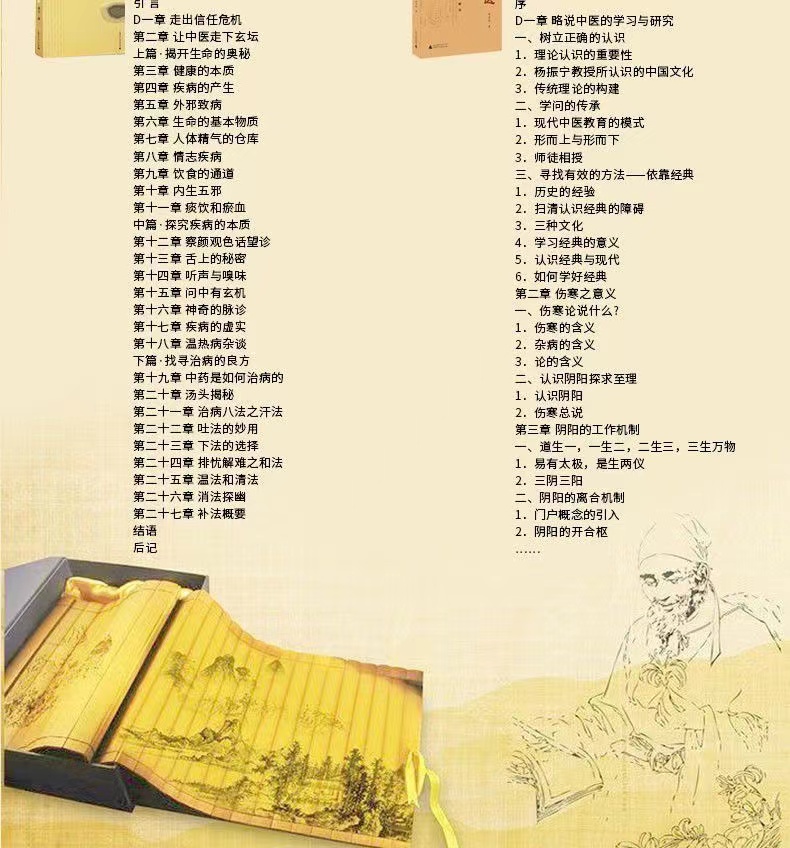 引言
D一章 走出信任危机
第二章 让中医走下玄坛
上篇·揭开生命的奥秘
第三章 健康的本质
第四章 疾病的产生
第五章 外邪致病
第六章 生命的基本物质
第七章 人体精气的仓库
第八章 情志疾病
第九章 饮食的通道
第十章 内生五邪
第十一章 痰饮和瘀血
中篇·探究疾病的本质
第十二章 察颜观色话望诊
第十三章 舌上的秘密
第十四章 听声与嗅味
第十五章 问中有玄机
第十六章 神奇的脉诊
第十七章 疾病的虚实
第十八章 温热病杂谈
下篇·找寻治病的良方
第十九章 中药是如何治病的
第二十章 汤头揭秘
第二十一章 治病八法之汗法
第二十二章 吐法的妙用
第二十三章 下法的选择
第二十四章 排忧解难之和法
第二十五章 温法和清法
第二十六章 消法探幽
第二十七章 补法概要
结语
后记
序
D一章 略说中医的学习与研究
一、树立正确的认识
1．理论认识的重要性
2．杨振宁教授所认识的中国文化
3．传统理论的构建
二、学问的传承
1．现代中医教育的模式
2．形而上与形而下
3．师徒相授
三、寻找有效的方法——依靠经典
1．历史的经验
2．扫清认识经典的障碍
3．三种文化
4．学习经典的意义
5．认识经典与现代
6．如何学好经典
第二章 伤寒之意义
一、伤寒论说什么?
1．伤寒的含义
2．杂病的含义
3．论的含义
二、认识阴阳探求至理
1．认识阴阳
2．伤寒总说
第三章 阴阳的工作机制
一、道生一，一生二，二生三，三生万物
1．易有太极，是生两仪
2．三阴三阳
二、阴阳的离合机制
1．门户概念的引入
2．阴阳的开合枢
……